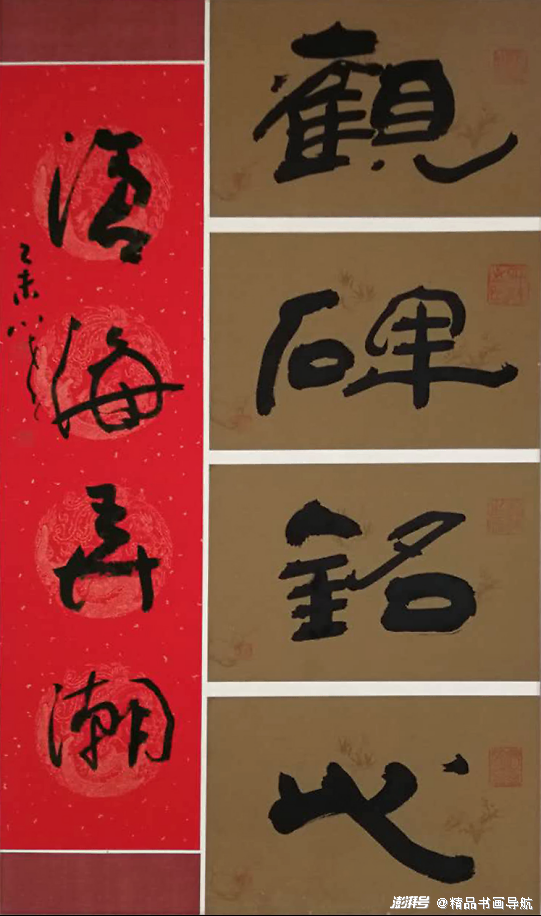 觀
碑
銘
心
滄海弄潮
乙未八
澎湃号 @精品书画导航